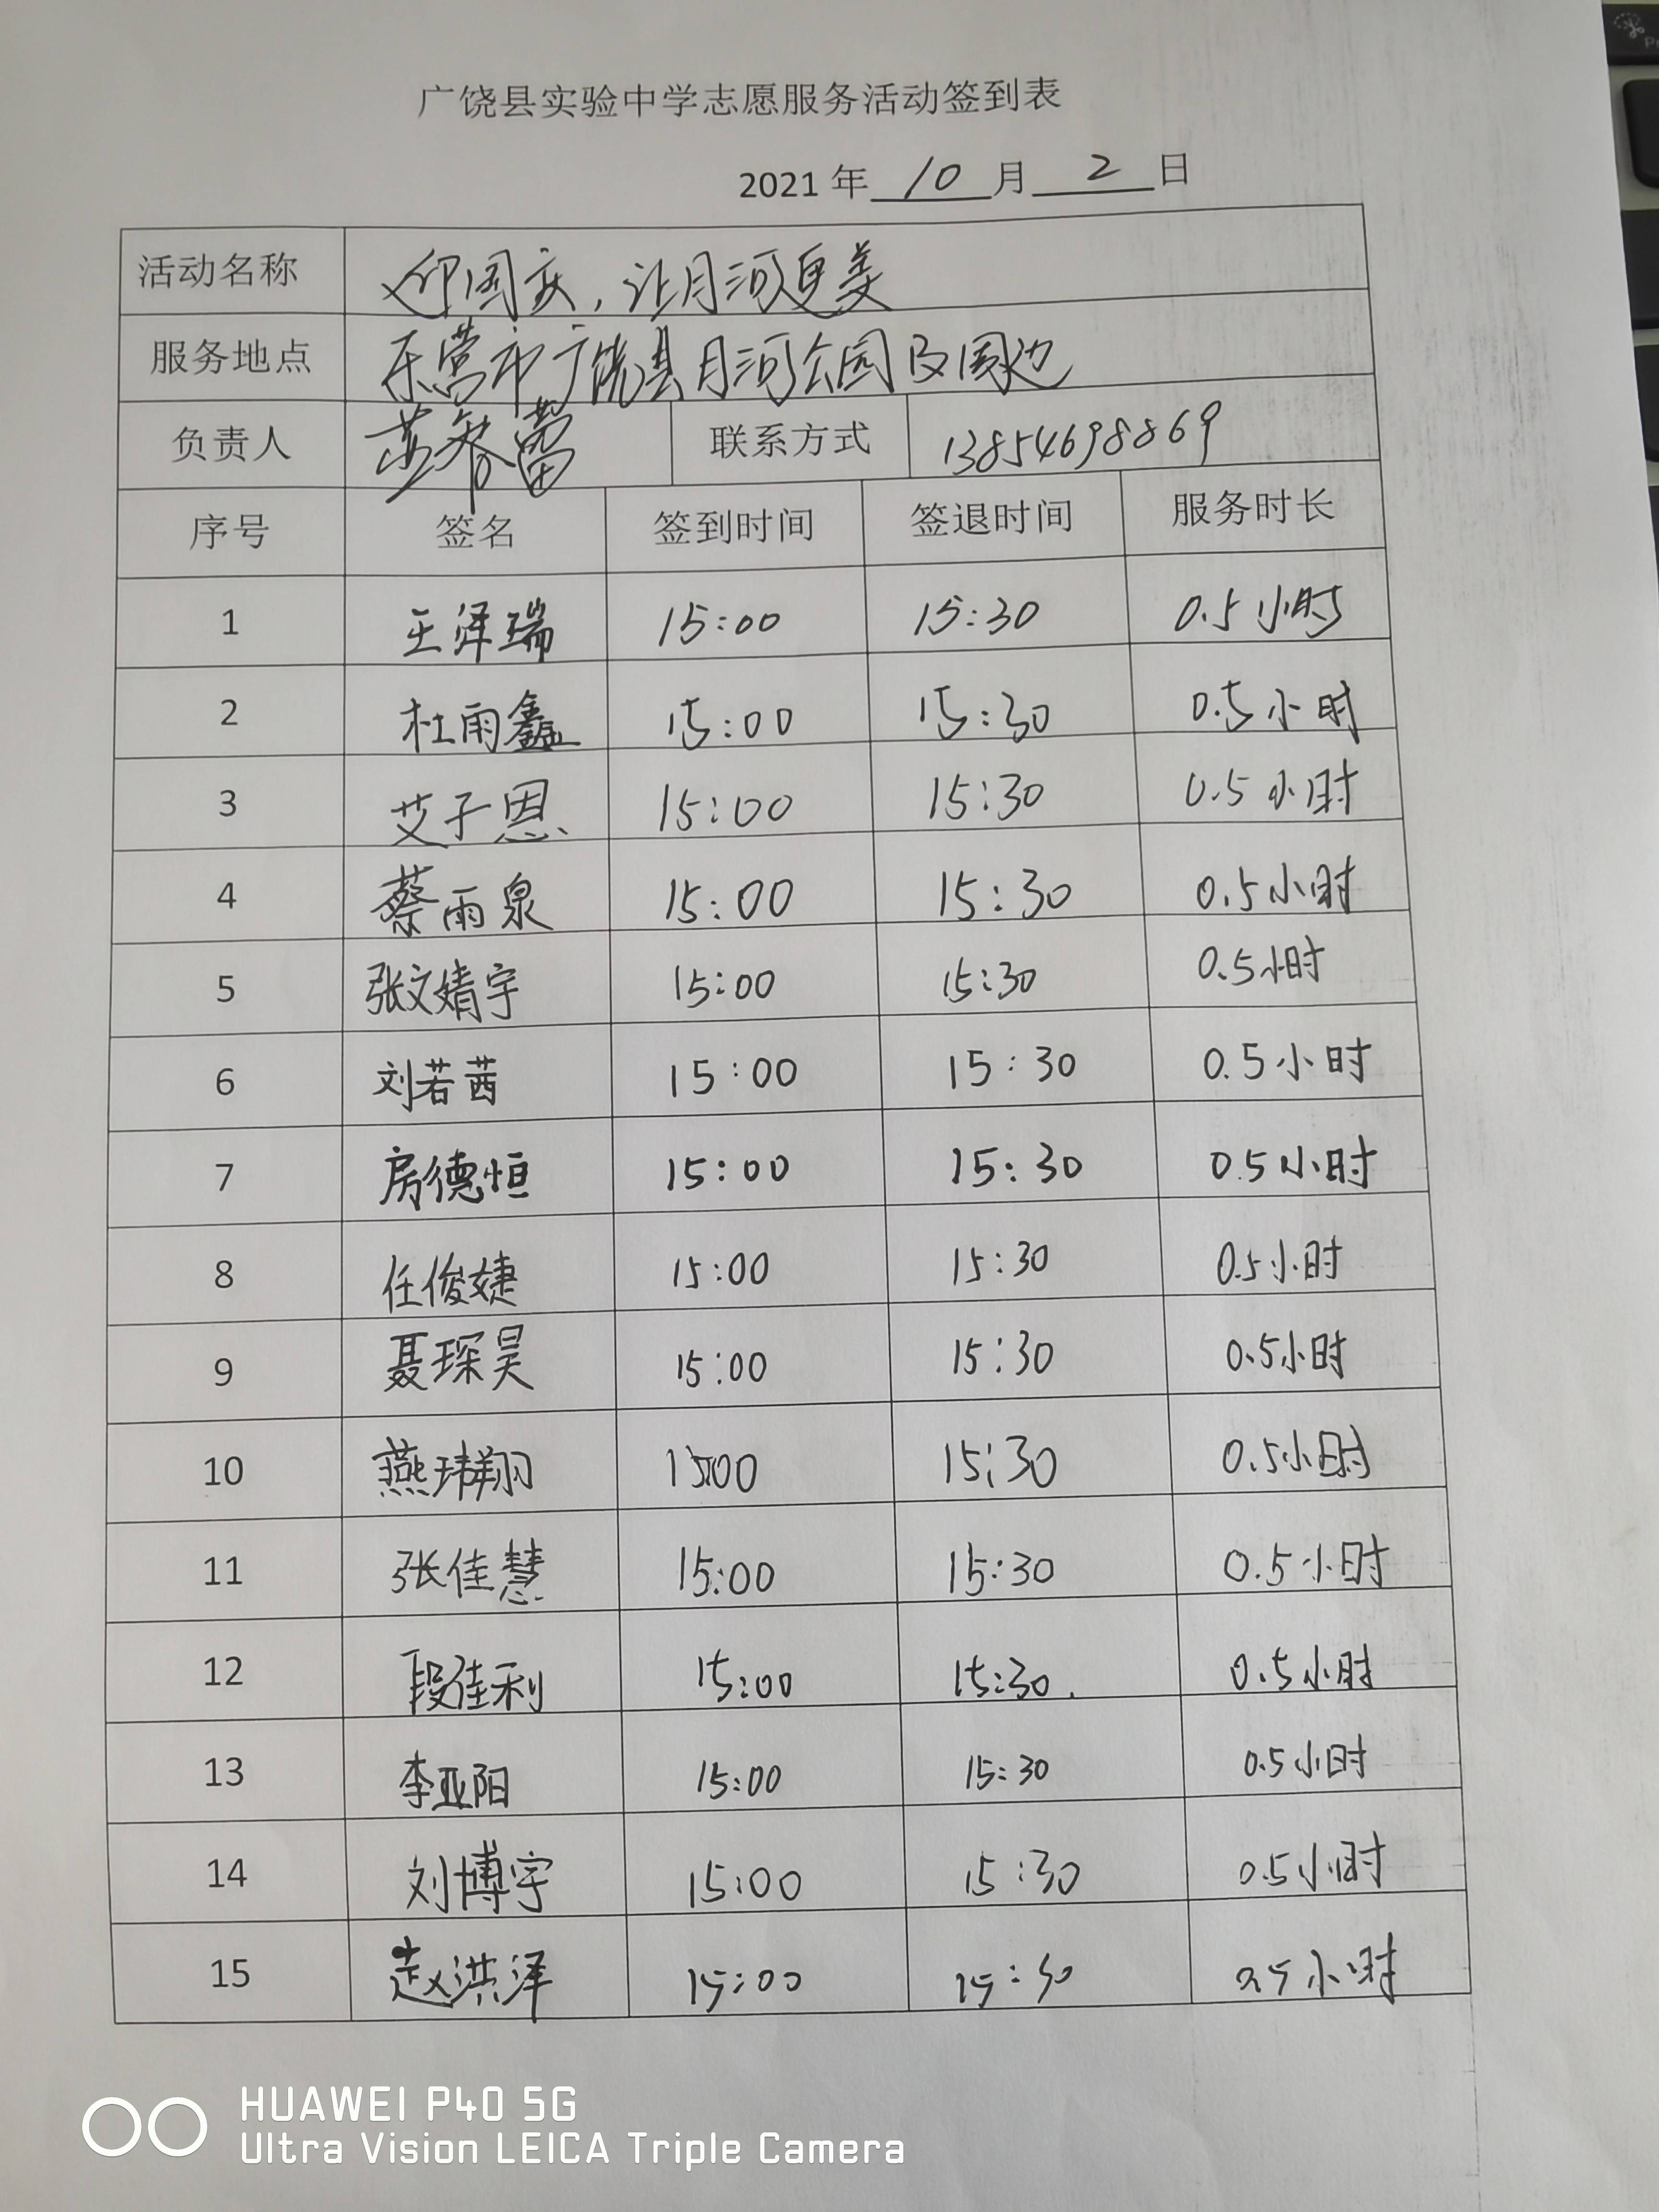 广饶县实验中学志愿服务活动签到表
2021 年 10 月 2 日
活动名称 迎国庆，让月河更美
服务地点 东营市广饶县月河公园及周边
负责人 联系方式 13854698869
序号 签名 签到时间 签退时间 服务时长
1 王泽瑞 15:00 15:30 0.5小时
2 杜雨鑫 15:00 15:30 0.5小时
3 艾子恩 15:00 15:30 0.5小时
4 蔡雨泉 15:00 15:30 0.5小时
5 张文婧宇 15:00 15:30 0.5小时
6 刘若茜 15:00 15:30 0.5小时
7 房德恒 15:00 15:30 0.5小时
8 任俊婕 15:00 15:30 0.5小时
9 聂琛昊 15:00 15:30 0.5小时
10 燕玮翔 15:00 15:30 0.5小时
11 张佳慧 15:00 15:30 0.5小时
12 段佳利 15:00 15:30. 0.5小时
13 李亚阳 15:00 15:30 0.5小时
14 刘博宇 15:00 15:30 0.5小时
15 赵洪泽 15:00 15:30 0.5小时
HUAWEI P40 5G
Ultra Vision LEICA Triple Camera